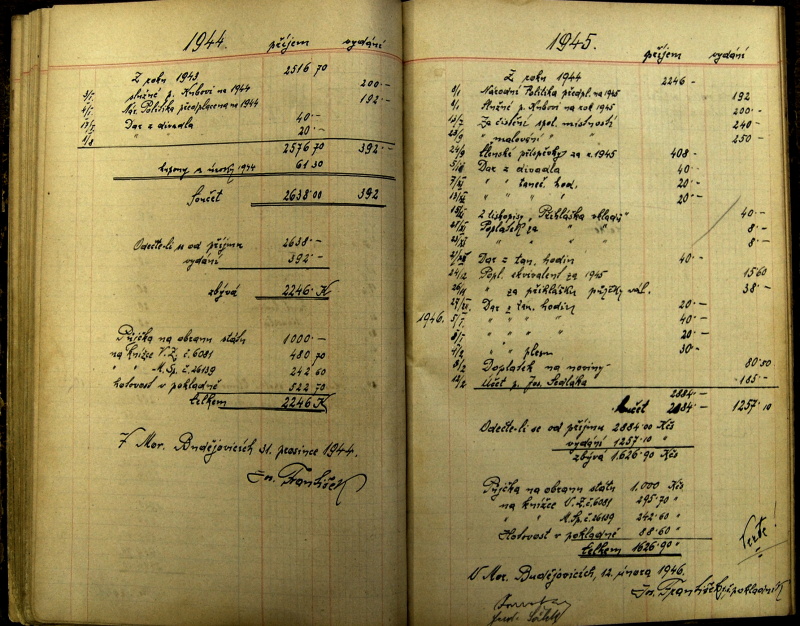 1944. příjem vydání
Z roku 1943 2516 70
3/I. služné p. Kubovi na 1944 200 –
4/I. Nár. Politika předplacena na 1944 192 –
17/I. Dar z divadla 40 –
1/8 " 20 –
2576 70 392 –
kupony a úroky 1944 61 30
Součet 2638 00 392
Odečte-li se od příjmu 2638 –
vydání 392 –
zbývá 2246 K
Půjčka na obranu státu 1000 –
na knížce V.Z. č. 6081 480 70
" " M.Sp. č. 26139 242 60
hotovost v pokladně 522 70
Celkem 2246 K
V Mor. Budějovicích 31. prosince 1944.
Jos. František
1945. příjem vydání
Z roku 1944 2246 –
2/I. Národní Politika předpl. na 1945 192
4/I. Služné p. Kubovi na rok 1945 200 –
Za čistění spol. místností 240 –
" malování " " 250 –
24/9 členské příspěvky za r. 1945 408 –
Dar z divadla 40 –
" " taneč. hod. 20 –
" " " 20 –
2 tiskopisy "Přihláška vkladů" 40 –
Poplatek za " " 8 –
" " " 8 –
Dar z tan. hodin 40 –
24/12 Popl. ekvivalent za 1945 15 60
" za přihlášku půjčky vál. 38 –
Dar z tan. hodin 20 –
1946. 5/I. " " " " 40 –
8/I. " " " " 20 –
" " plesu 30 –
Doplatek na noviny 80 50
Účet p. Jos. Sedláka 185 –
2884 –
Součet 2884 – 1257 10
Odečte-li se od příjmu 2884 00 Kčs
vydání 1257 10 "
zbývá 1.626 90 Kčs
Půjčka na obranu státu 1.000 Kčs
na knížce V.Z. č. 6081 295 70 "
" " M.Sp. č. 26139 242 60 "
Hotovost v pokladně 88 60 "
Celkem 1626 90 "
V Mor. Budějovicích, 12. února 1946.
Jos. František pokladník